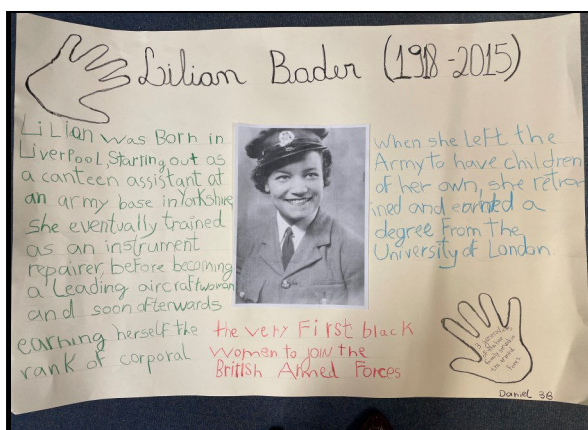 Lilian Bader (1918-2015)
LiLian was Born in
Liverpool, starting out as
a canteen assistant at
an army base in Yorkshire
she eventually trained
as an instrument
repairer, before becoming
a Leading aircraftwoman
and soon afterwards
earning herself the
rank of corporal
the very First black
women to join the
British Armed Forces
when she left the
Army to have children
of her own, she retra
ined and earned a
degree From the
University of London
3 generations
of
family
Daniel 3B